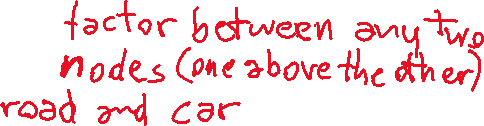 factor between any two
nodes (one above the other)
road and car